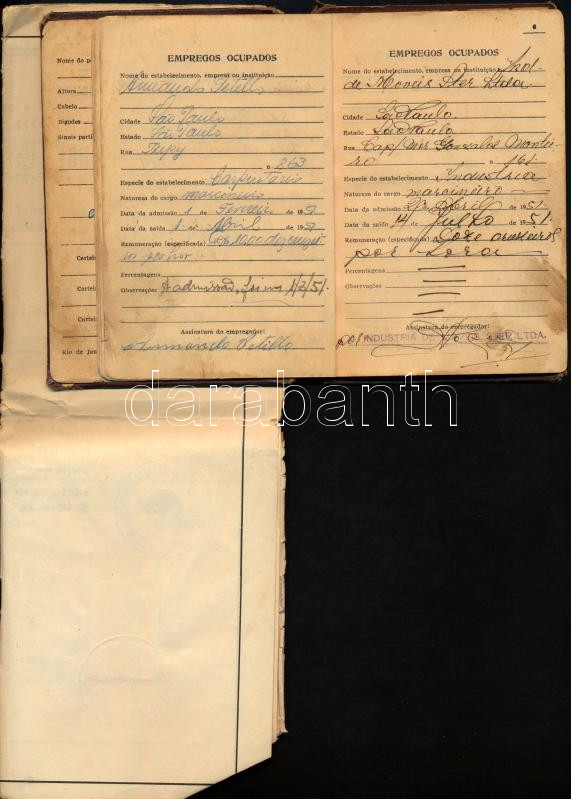 Nome do
Altura
Cabelo
Bigodes
Sinais parti
Cartei
Cartei
Cartei
Rio de Jan
EMPREGOS OCUPADOS
Nome do estabelecimento, empresa ou instituição
Armando Petillo
Cidade São Paulo
Estado São Paulo
Rua Tupy
n. 863
Especie do estabelecimento Carpintaria
Natureza do cargo marcineiro
Data da admissão 1 de Fevereiro de 1951
Data da saída 1 de Abril de 1951
Remuneração (especificada)
por hora
Percentagens
Observações A admissão foi em 1/2/51.
Assinatura do empregador:
Armando Petillo
6
EMPREGOS OCUPADOS
Nome do estabelecimento, empresa ou instituição Ind.
de Moveis Ltda.
Cidade São Paulo.
Estado São Paulo
Rua Cap/ Mor Gonzalos Montei-
ro n. 161
Especie do estabelecimento Industria
Natureza do cargo marcineiro
Data da admissão de Abril de 1951
Data da saída 14 de Julho de 1951.
Remuneração (especificada) Doze cruzeiros
por hora
Percentagens
Observações
Assinatura do empregador:
por INDUSTRIA DE LTDA.
darabanth